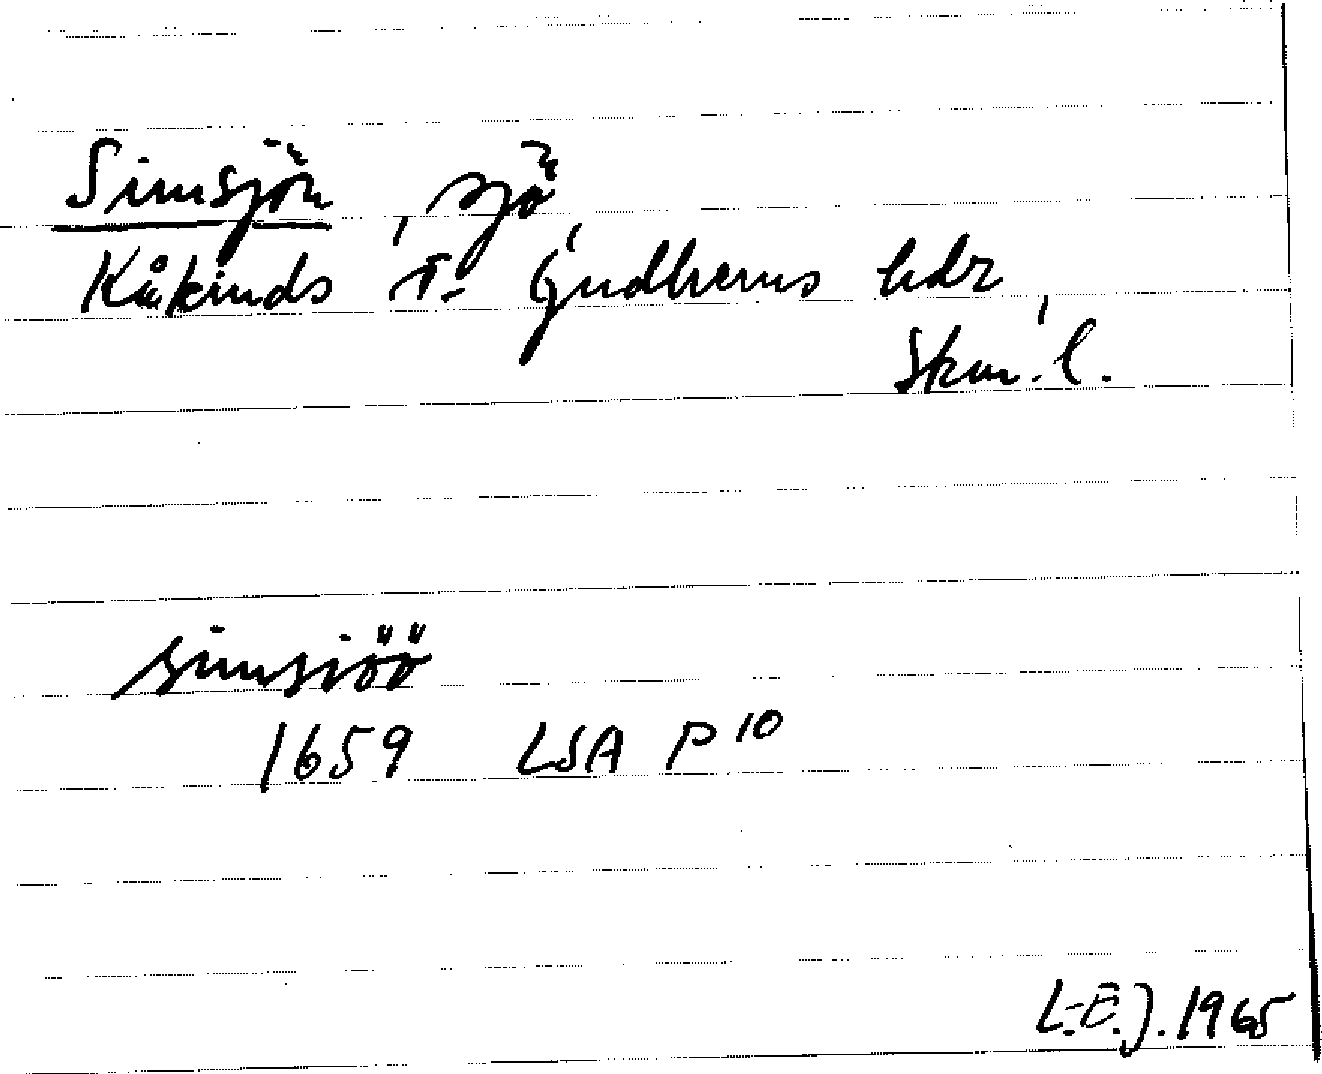 Simsjön, sjö,
Kåkinds o. Gudhems hdr,
Skar. l.
simsiöö
1659 LSA P 10
L.-E. J. 1965